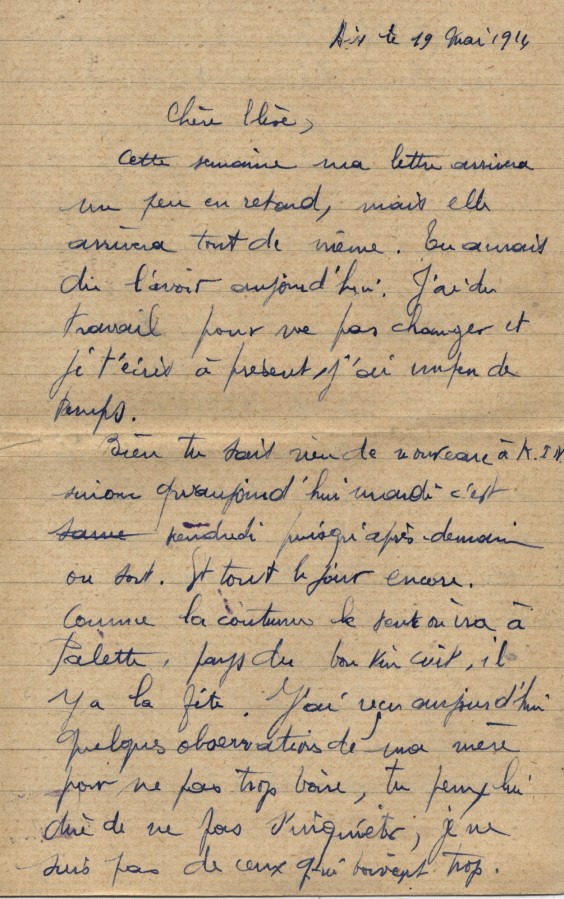 Aix le 19 Mai 1914
Chère
Cette semaine ma lettre arrivera
un peu en retard, mais elle
arrivera tout de même. Tu aurais
dû l'avoir aujourd'hui. J'ai du
travail pour ne pas changer et
je t'écris à présent, j'ai un peu de
temps.
Bien tu sais rien de nouveau à
sinon qu'aujourd'hui mardi c'est
vendredi puisqu'après-demain
on sort. Et tout le jour encore.
Comme la coutume le veut on ira à
Palette, pays du bon vin cuit, il
y a la fête. J'ai reçu aujourd'hui
quelques observations de ma mère
pour ne pas trop boire, tu peux lui
dire de ne pas s'inquiéter, je ne
suis pas de ceux qui boivent trop.